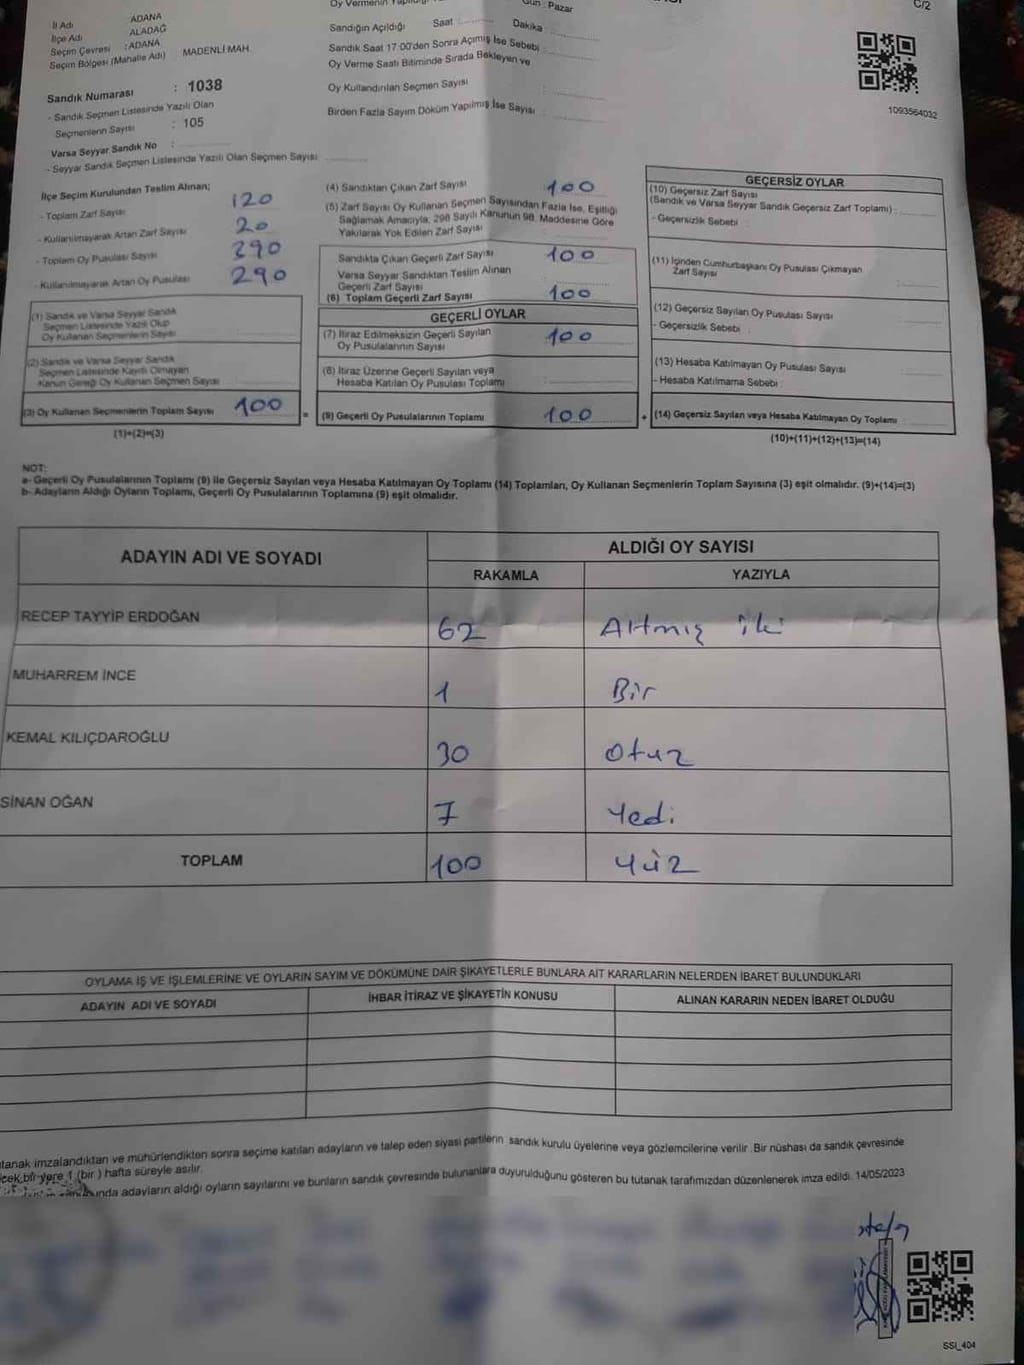 C/2
İl Adı ADANA
İlçe Adı ALADAĞ
Seçim Çevresi : ADANA
Seçim Bölgesi (Mahalle Adı) MADENLİ MAH.
Gün : Pazar
Sandığın Açıldığı Saat : Dakika :
Sandık Saat 17:00'den Sonra Açılmış İse Sebebi :
Oy Verme Saati Bitiminde Sırada Bekleyen ve
Oy Kullandırılan Seçmen Sayısı
Birden Fazla Sayım Döküm Yapılmış İse Sayısı
1093564032
Sandık Numarası : 1038
- Sandık Seçmen Listesinde Yazılı Olan
Seçmenlerin Sayısı : 105
Varsa Seyyar Sandık No :
- Seyyar Sandık Seçmen Listesinde Yazılı Olan Seçmen Sayısı
İlçe Seçim Kurulundan Teslim Alınan;
- Toplam Zarf Sayısı 120
- Kullanılmayarak Artan Zarf Sayısı 20
- Toplam Oy Pusulası Sayısı 390
- Kullanılmayarak Artan Oy Pusulası 290
(1) Sandık ve Varsa Seyyar Sandık
Seçmen Listesinde Yazılı Olup
Oy Kullanan Seçmenlerin Sayısı
(2) Sandık ve Varsa Seyyar Sandık
Seçmen Listesinde Kayıtlı Olmayan
Kanun Gereği Oy Kullanan Seçmen Sayısı
(3) Oy Kullanan Seçmenlerin Toplam Sayısı 100
(1)+(2)=(3)
(4) Sandıktan Çıkan Zarf Sayısı 100
(5) Zarf Sayısı Oy Kullanan Seçmen Sayısından Fazla İse, Eşitliği
Sağlamak Amacıyla, 298 Sayılı Kanunun 98. Maddesine Göre
Yakılarak Yok Edilen Zarf Sayısı
Sandıkta Çıkan Geçerli Zarf Sayısı 100
Varsa Seyyar Sandıktan Teslim Alınan
Geçerli Zarf Sayısı
(6) Toplam Geçerli Zarf Sayısı 100
GEÇERLİ OYLAR
(7) İtiraz Edilmeksizin Geçerli Sayılan
Oy Pusulalarının Sayısı 100
(8) İtiraz Üzerine Geçerli Sayılan veya
Hesaba Katılan Oy Pusulası Toplamı
= (9) Geçerli Oy Pusulalarının Toplamı 100
GEÇERSİZ OYLAR
(10) Geçersiz Zarf Sayısı
(Sandık ve Varsa Seyyar Sandık Geçersiz Zarf Toplamı) :
- Geçersizlik Sebebi :
(11) İçinden Cumhurbaşkanı Oy Pusulası Çıkmayan
Zarf Sayısı
(12) Geçersiz Sayılan Oy Pusulası Sayısı
- Geçersizlik Sebebi :
(13) Hesaba Katılmayan Oy Pusulası Sayısı
- Hesaba Katılmama Sebebi :
+ (14) Geçersiz Sayılan veya Hesaba Katılmayan Oy Toplamı
(10)+(11)+(12)+(13)=(14)
NOT:
a- Geçerli Oy Pusulalarının Toplamı (9) ile Geçersiz Sayılan veya Hesaba Katılmayan Oy Toplamı (14) Toplamları, Oy Kullanan Seçmenlerin Toplam Sayısına (3) eşit olmalıdır. (9)+(14)=(3)
b- Adayların Aldığı Oyların Toplamı, Geçerli Oy Pusulalarının Toplamına (9) eşit olmalıdır.
ADAYIN ADI VE SOYADI ALDIĞI OY SAYISI
RAKAMLA YAZIYLA
RECEP TAYYİP ERDOĞAN 62 Altmış iki
MUHARREM İNCE 1 Bir
KEMAL KILIÇDAROĞLU 30 Otuz
SİNAN OĞAN 7 Yedi
TOPLAM 100 Yüz
OYLAMA İŞ VE İŞLEMLERİNE VE OYLARIN SAYIM VE DÖKÜMÜNE DAİR ŞİKAYETLERLE BUNLARA AİT KARARLARIN NELERDEN İBARET BULUNDUKLARI
ADAYIN ADI VE SOYADI İHBAR İTİRAZ VE ŞİKAYETİN KONUSU ALINAN KARARIN NEDEN İBARET OLDUĞU
tanak imzalandıktan ve mühürlendikten sonra seçime katılan adayların ve talep eden siyasi partilerin sandık kurulu üyelerine veya gözlemcilerine verilir. Bir nüshası da sandık çevresinde
bir yere 1 (bir ) hafta süreyle asılır.
adayların aldığı oyların sayılarını ve bunların sandık çevresinde bulunanlara duyurulduğunu gösteren bu tutanak tarafımızdan düzenlenerek imza edildi. 14/05/2023
SSİ_404